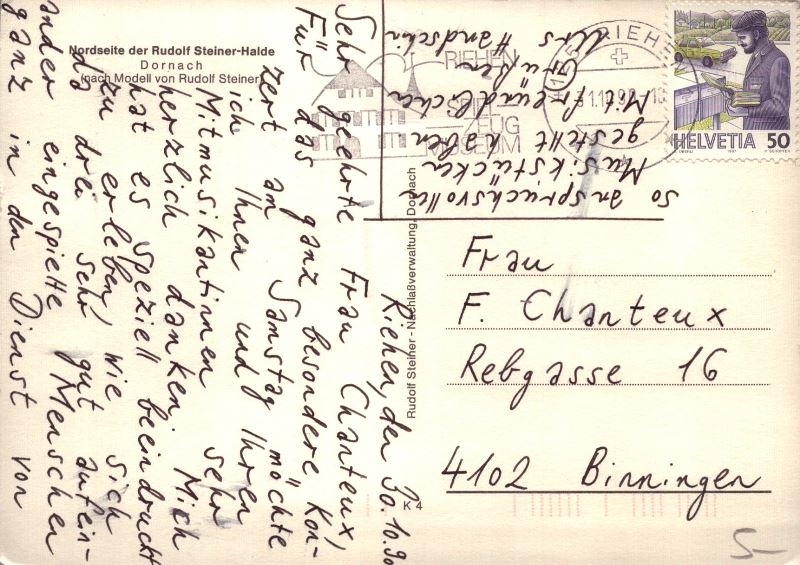 Nordseite der Rudolf Steiner-Halde
Dornach
(nach Modell von Rudolf Steiner)
Riehen, den 30.10.90
Sehr geehrte Frau Chanteux,
Für das ganz besondere Kon-
zert am Samstag möchte
ich Ihnen und Ihren
Mitmusikantinnen sehr
herzlich danken. Mich
hat es speziell beeindruckt
zu erleben, wie sich
da drei sehr gut aufein-
ander eingespielte Menschen
ganz in den Dienst von
so anspruchsvollen
Musikstücken
gestellt haben.
Mit freundlichen
Grüßen
Urs
Handschin
Rudolf Steiner - Nachlaßverwaltung, Dornach
K 4
RIEHEN
SPIELZEUG
MUSEUM
RIEHEN
HELVETIA 50
Frau
F. Chanteux
Rebgasse 16
4102 Binningen
5-